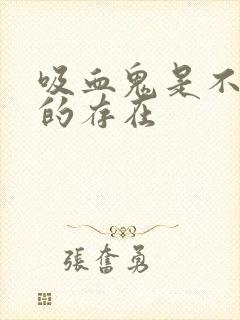 吸血鬼是不
的存在
張奮勇